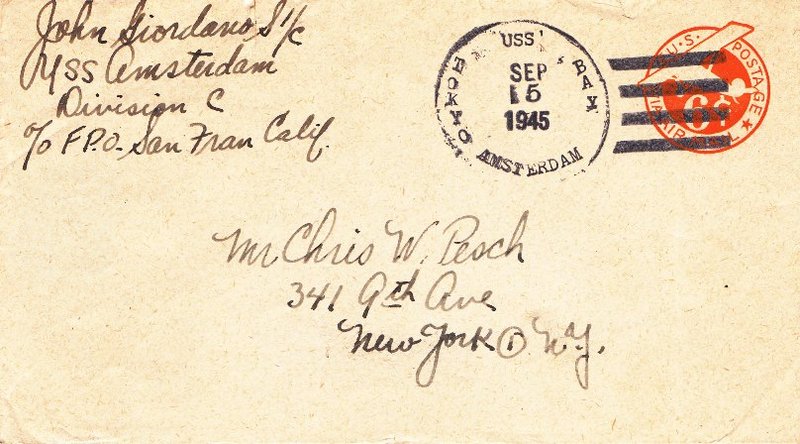 John Giordano S 1/c
USS Amsterdam
Division C
c/o F.P.O. San Fran Calif.
USS
TOKYO BAY
SEP
15
1945
AMSTERDAM
U.S. POSTAGE
6¢
VIA AIR MAIL
Mr Chris W. Pesch
341 9th Ave
New York ① N.Y.